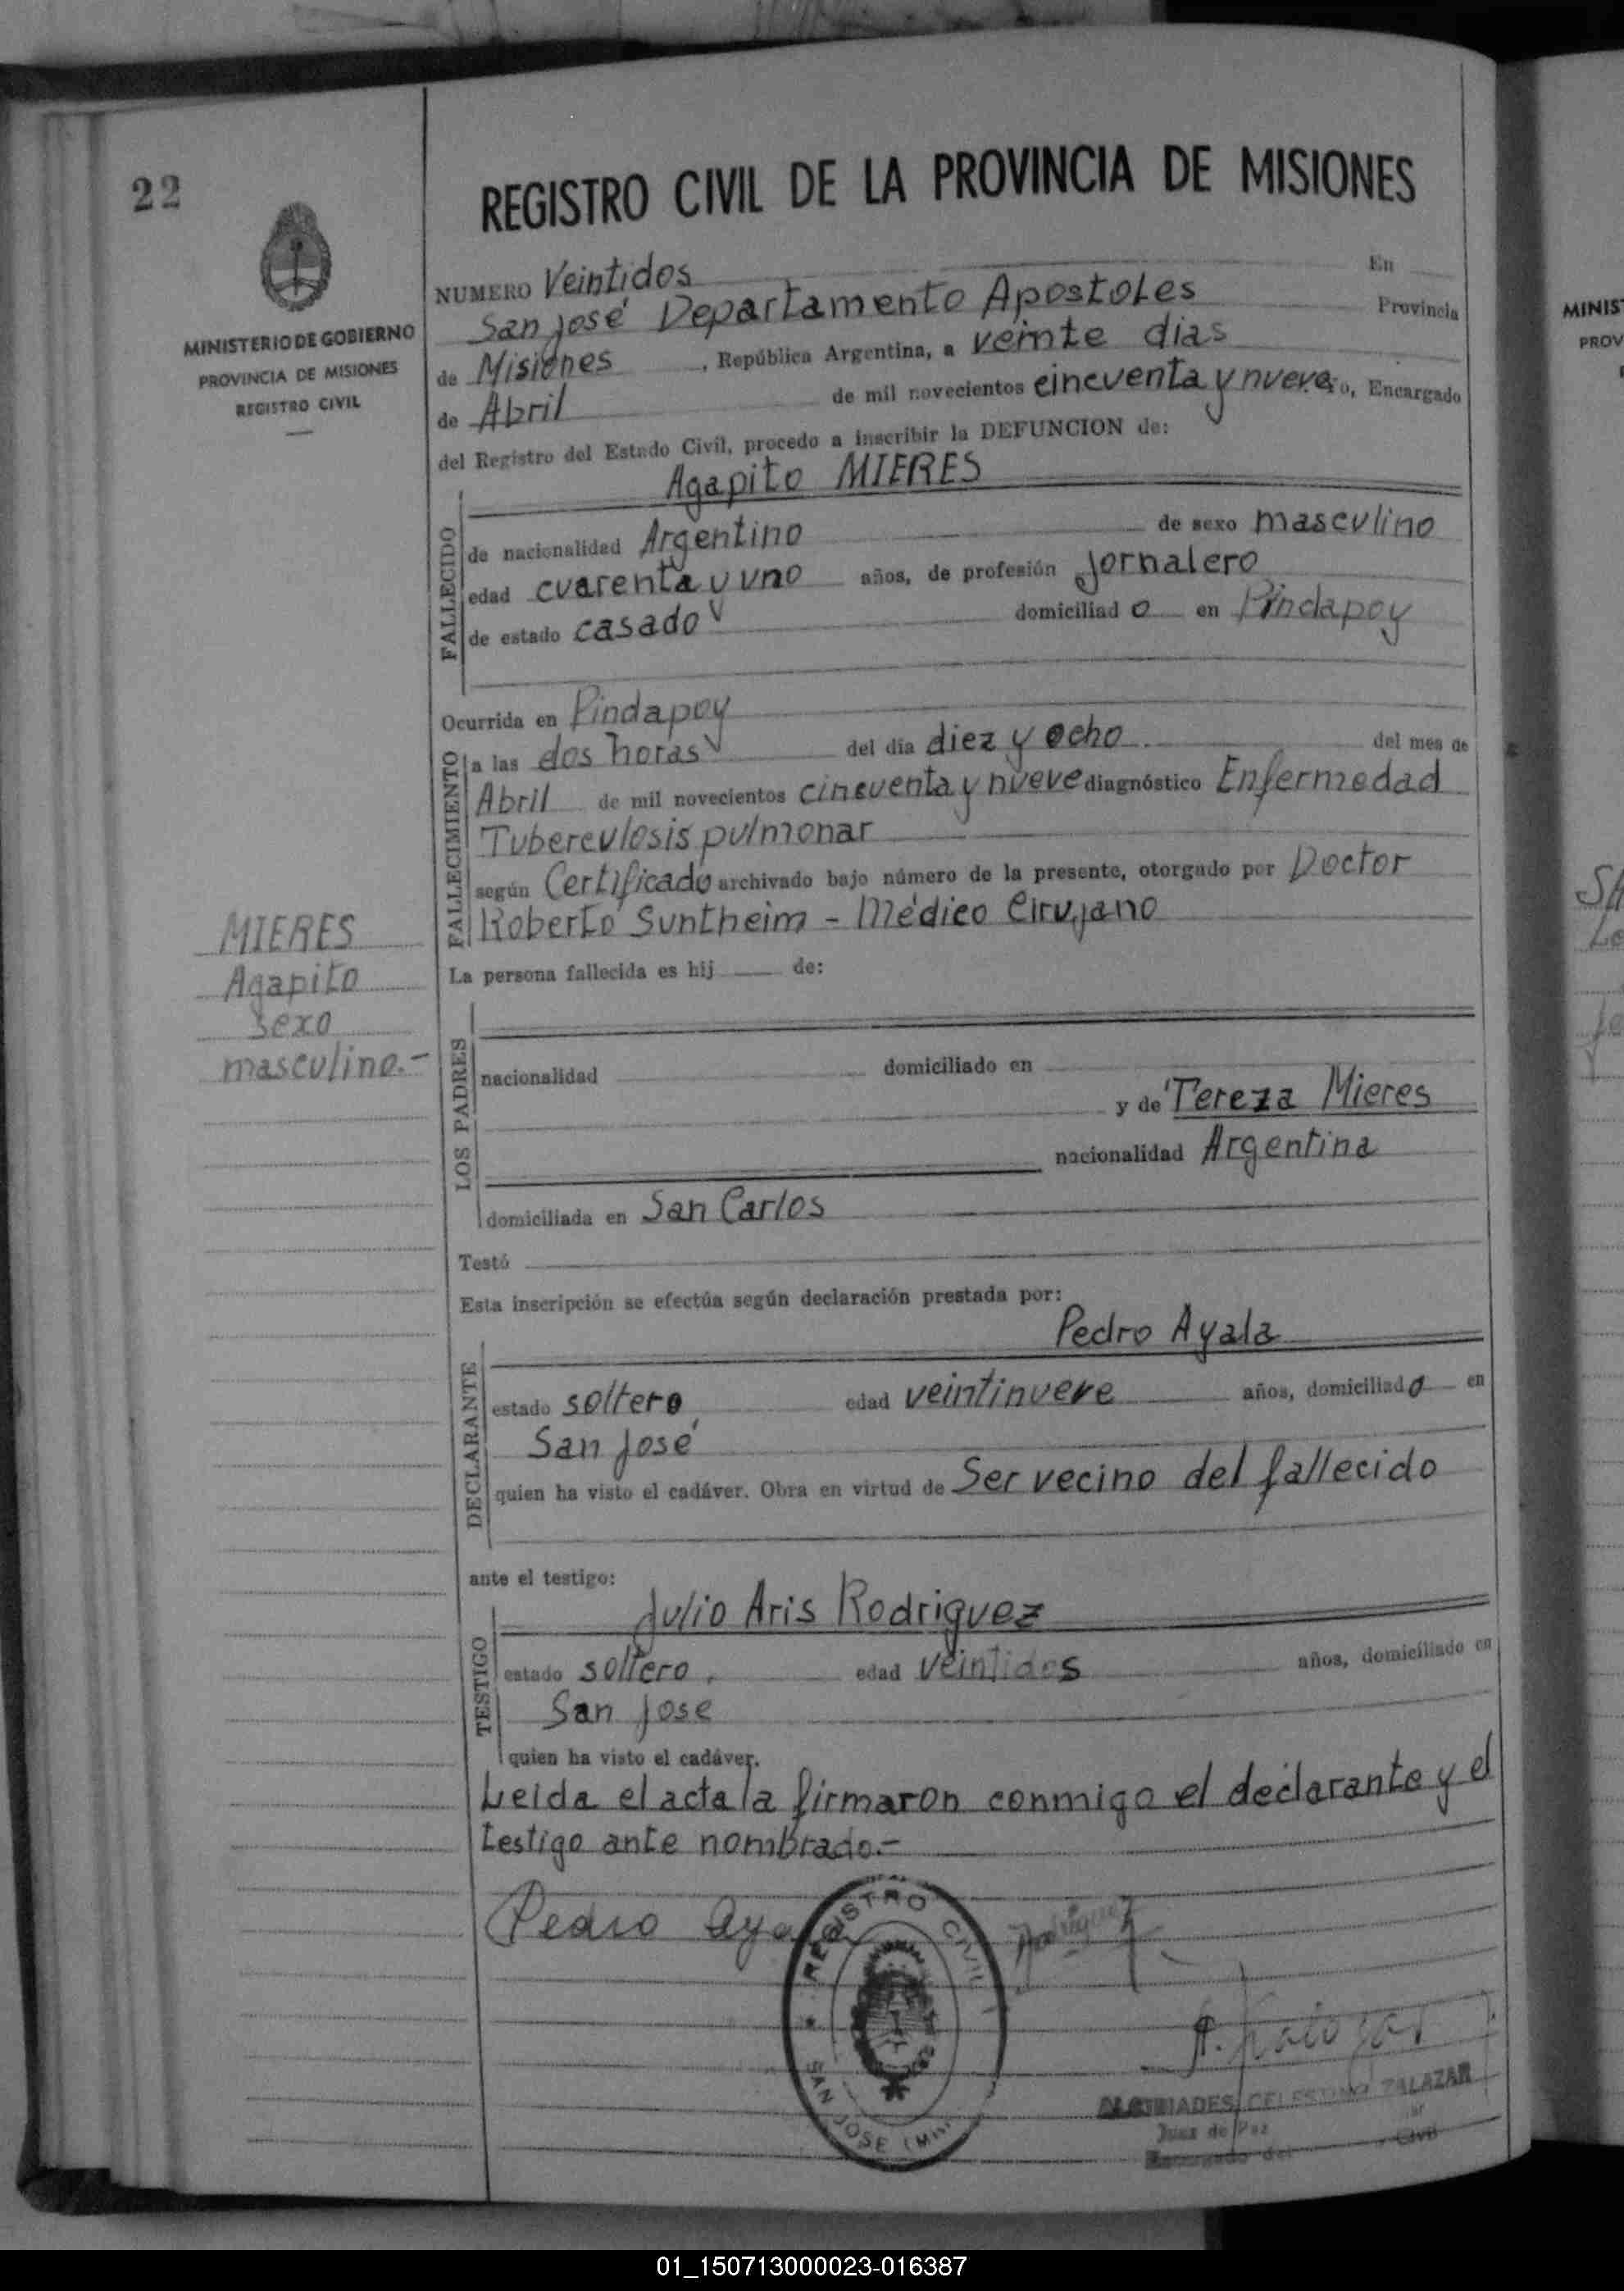 22
MINISTERIO DE GOBIERNO
PROVINCIA DE MISIONES
REGISTRO CIVIL
REGISTRO CIVIL DE LA PROVINCIA DE MISIONES
NUMERO Veintidos En
San José Departamento Apostoles Provincia
de Misiones, República Argentina, a veinte dias
de Abril de mil novecientos cincuenta y nueve, Encargado
del Registro del Estado Civil, procedo a inscribir la DEFUNCION de:
Agapito MIERES
FALLECIDO
de nacionalidad Argentino de sexo masculino
edad cuarenta y uno años, de profesión Jornalero
de estado casado domiciliado en Pindapoy
Ocurrida en Pindapoy
FALLECIMIENTO
a las dos horas del día diez y ocho del mes de
Abril de mil novecientos cincuenta y nueve diagnóstico Enfermedad
Tuberculosis pulmonar
según Certificado archivado bajo número de la presente, otorgado por Doctor
Roberto Suntheim - Médico Cirujano
MIERES
Agapito
sexo
masculino.-
La persona fallecida es hij de:
LOS PADRES
nacionalidad domiciliado en
y de Tereza Mieres
nacionalidad Argentina
domiciliada en San Carlos
Testó
Esta inscripción se efectúa según declaración prestada por:
Pedro Ayala
DECLARANTE
estado soltero edad veintinueve años, domiciliado en
San José
quien ha visto el cadáver. Obra en virtud de Ser vecino del fallecido
ante el testigo:
Julio Aris Rodriguez
TESTIGO
estado soltero, edad veintidos años, domiciliado en
San Jose
quien ha visto el cadáver.
Leida el acta la firmaron conmigo el declarante y el
testigo ante nombrado.-
Pedro Aya
Rodriguez
REGISTRO CIVIL
SAN JOSE (Mnes)
ALCIBIADES CELESTINO ZALAZAR
Juez de Paz
Encargado del Civil
MINIS
PROV
01_150713000023-016387